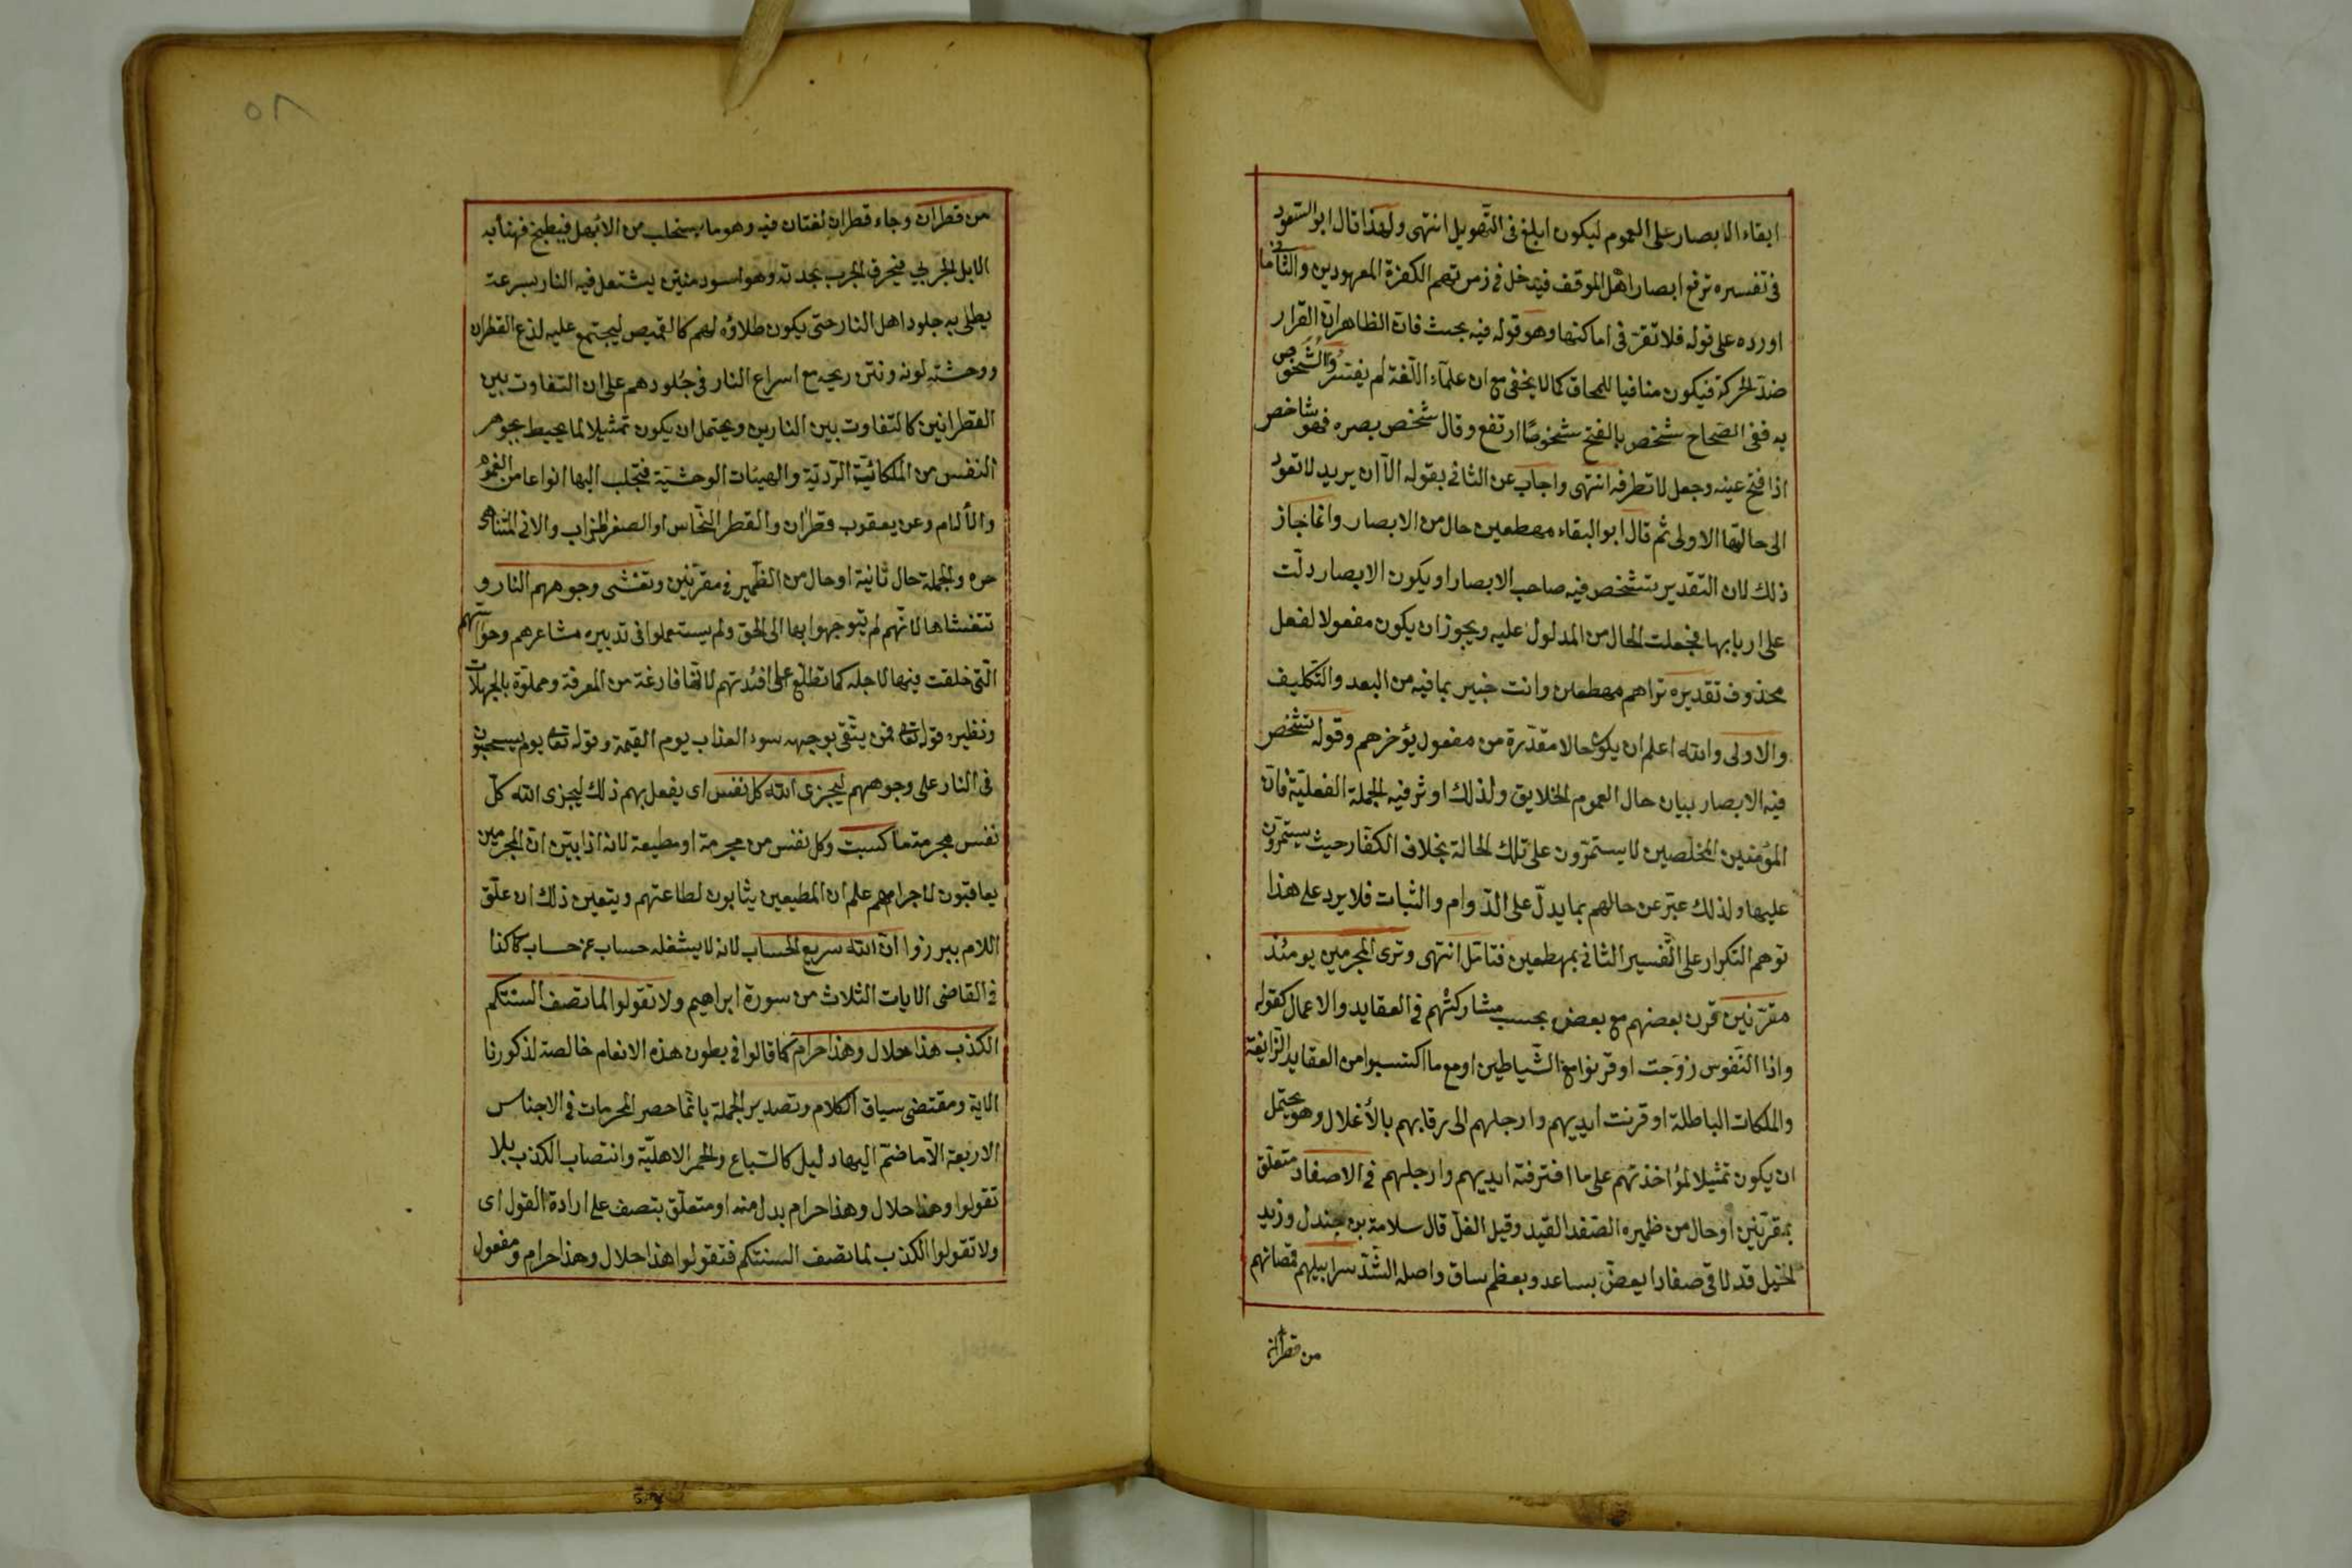 ابقاء الابصار على العموم ليكون ابلغ فى التهويل انتهى ولهذا قال ابو السعود
فى تفسيره ترفع ابصار اهل الموقف فيدخل فى زمرتهم الكفرة المعهودين والثانى ما
اورده على قوله فلا تقر فى اماكنها وهو قوله فيه بحث فان الظاهر ان القرار
ضد الحركة فيكون منافيا للمحاق كما لا يخفى مع ان علمآء اللغة لم يفسروا الشخوص
به ففى الصحاح شخص بالفتح شخوصًا ارتفع وقال شخص بصره فهو شاخص
اذا فتح عينه وجعل لا تطرفه انتهى واجاب عن الثانى بقوله الّا ان يريد لا تعود
الى حالتها الاولى ثم قال ابو البقاء مهطعين حال من الابصار وانما جاز
ذلك لان التقدير تشخص فيه صاحب الابصار او يكون الابصار دلّت
على اربابها فجعلت الحال من المدلول عليه ويجوز ان يكون مفعولا لفعل
محذوف تقديره تراهم مهطعين وانت خبير بما فيه من البعد والتكليف
والاولى والله اعلم ان يكون حالا مقدّرة من مفعول يؤخرهم وقوله تشخص
فيه الابصار بيان حال العموم الخلايق ولذلك اوثر فيه الجملة الفعليّة فان
المؤمنين المخلصين لا يستمرّون على تلك الحالة بخلاف الكفار حيث يستمرّون
عليها ولذلك عبّر عن حالهم بما يدلّ على الدّوام والثبات فلا يرد على هذا
توهم التكرار على التفسير الثانى بمهطعين فتامّل انتهى وترى المجرمين يومئذ
مقرّنين قرن بعضهم مع بعض بحسب مشاركتهم فى العقايد والاعمال كقوله
واذا النّفوس زوّجت او قرنوا مع الشّياطين او مع ما اكتسبوا من العقايد الزّايغة
والملكات الباطلة او قرنت ايديهم وارجلهم الى رقابهم بالأغلال وهو يحتمل
ان يكون تمثيلا لمؤاخذتهم على ما اقترفته ايديهم وارجلهم فى الاصفاد متعلّق
بمقرّنين او حال من ضميره الصّفد القيد وقيل الغلّ قال سلامة بن جندل وزيد
الخيل قد لاقى صفادا يعضّ بساعد وبعظم ساق واصله الشّدّ سرابيلهم قمصانهم
من قطران
٥٨
من قطران وجاء قطران لغتان فيه وهو ما يستحلب من الابهل فيطبخ فهنأ به
الابل الجربى فيحرق الجرب بحدته وهو اسود منتن يشتعل فيه النار بسرعة
يطلى به جلود اهل النار حتى يكون طلاؤه لهم كالقميص ليجتمع عليه لذع القطران
ووحشته لونه ونتن ريحه مع اسراع النار فى جُلودهم على ان التفاوت بين
القطرانين كالتفاوت بين النارين ويحتمل ان يكون تمثيلا لما يحيط بجوهر
النفس من الملكائيّة الرّديّة والهيئات الوحشيّة فتجلب اليها انواعا من الغموم
والألام وعن يعقوب قطران والقطر النّحاس او الصفر المذاب والانى المتناهى
حره والجملة حال ثانية او حال من الضّمير فى مقرّنين وتغشى وجوههم النار و
تتغشاها لانّهم لم يتوجهوا بها الى الحق ولم يستعملوا فى تدبيره مشاعرهم وحواسّهم
الّتى خلقت فيها لاجله كما تطّلع على افئدتهم لانّها فارغة من المعرفة ومملوّة بالجهلات
ونظيره قوله تعالى فمن يتّقى بوجهه سوء العذاب يوم القيمة وقوله تعالى يوم يسحبون
فى النار على وجوههم ليجزى الله كل نفس اى يفعل بهم ذلك ليجزى الله كلّ
نفس مجرمة ما كسبت وكل نفس من مجرمة او مطيعة لانه اذا بيّن انّ المجرمين
يعاقبون لاجرامهم علم ان المطيعين يثابون لطاعتهم ويتعين ذلك ان علّق
اللام ببرزوا انّ الله سريع الحساب لانه لا يشغله حساب عن حساب كما كذا
فى القاضى الايات الثلاث من سورة ابراهيم ولا تقولوا لما تصف السنتكم
الكذب هذا حلال وهذا حرام كما قالوا فى بطون هذه الانعام خالصة لذكورنا
الاية ومقتضى سياق الكلام وتصدير الجملة بانّما حصر المحرمات فى الاجناس
الاربعة الّا ما ضمّ اليها دليل كالسّباع والحمر الاهليّة وانتصاب الكذب بلا
تقولوا وهذا حلال وهذا حرام بدل منه او متعلّق بتصف على ارادة القول اى
ولا تقولوا الكذب لما تصف السنتكم فتقولوا هذا حلال وهذا حرام ومفعول